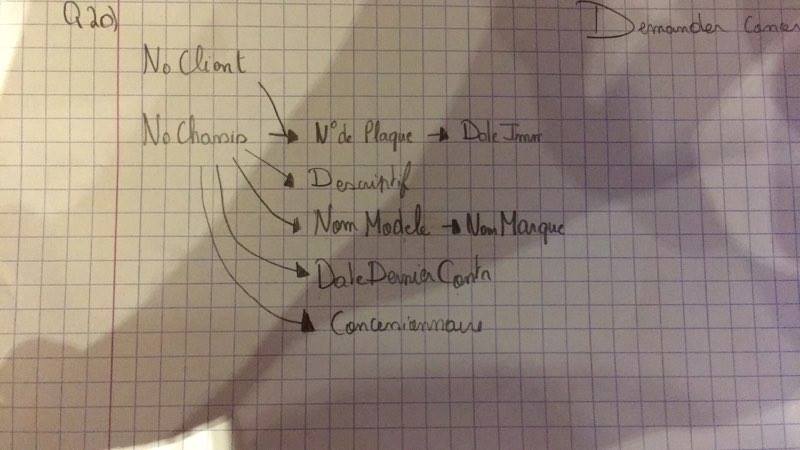 Q20)
Demander
No Client
No Chassis → N° de Plaque → Date Imm
Descriptif
Nom Modele → Nom Marque
Date Dernier Contr
Concessionnaire